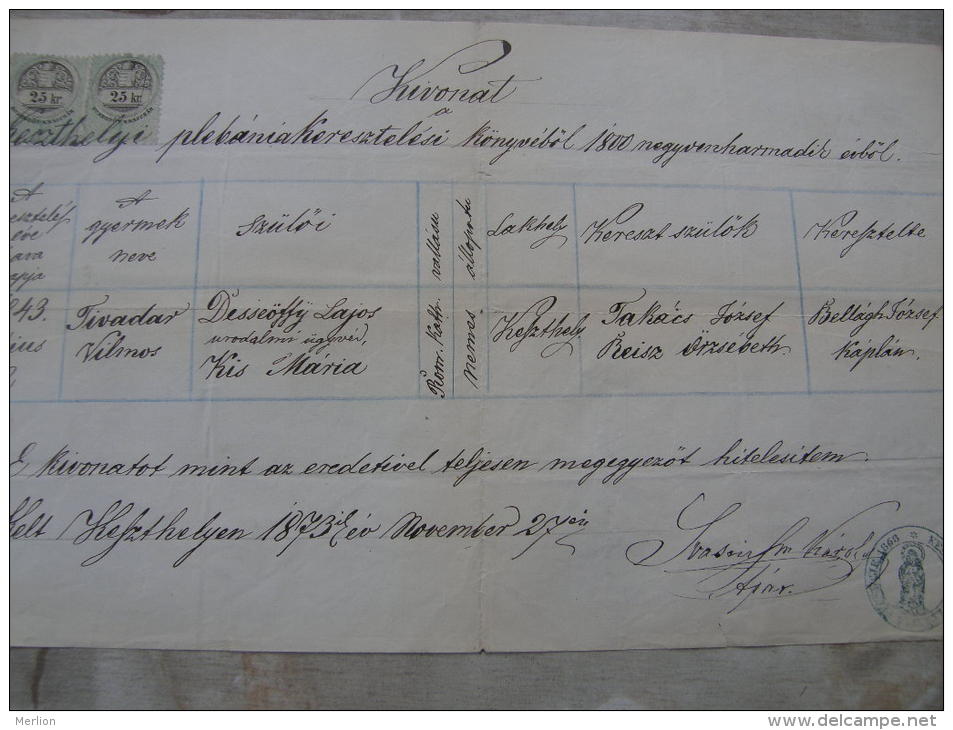 25 kr. 25 kr.
Kivonat
a
keszthelyi plebánia keresztelési könyvéből 1800 negyvenharmadik évből.
A
gyermek
neve
Szülői
Rom. Kath. vallásu
nemes állapotu
Lakhely
Kereszt szülők
Keresztelte
843.
Tivadar
Vilmos
Dessëőffy Lajos
urodalmi ügyvéd,
Kis Mária
Keszthely.
Takács József
Reisz Örzsébeth
Bellágh József
Káplán.
E kivonatot mint az eredetivel teljesen megegyezőt hitelesitem.
Kelt Keszthelyen 1873ik év November 27én
Károly
1866
Merlion
www.delcampe.net